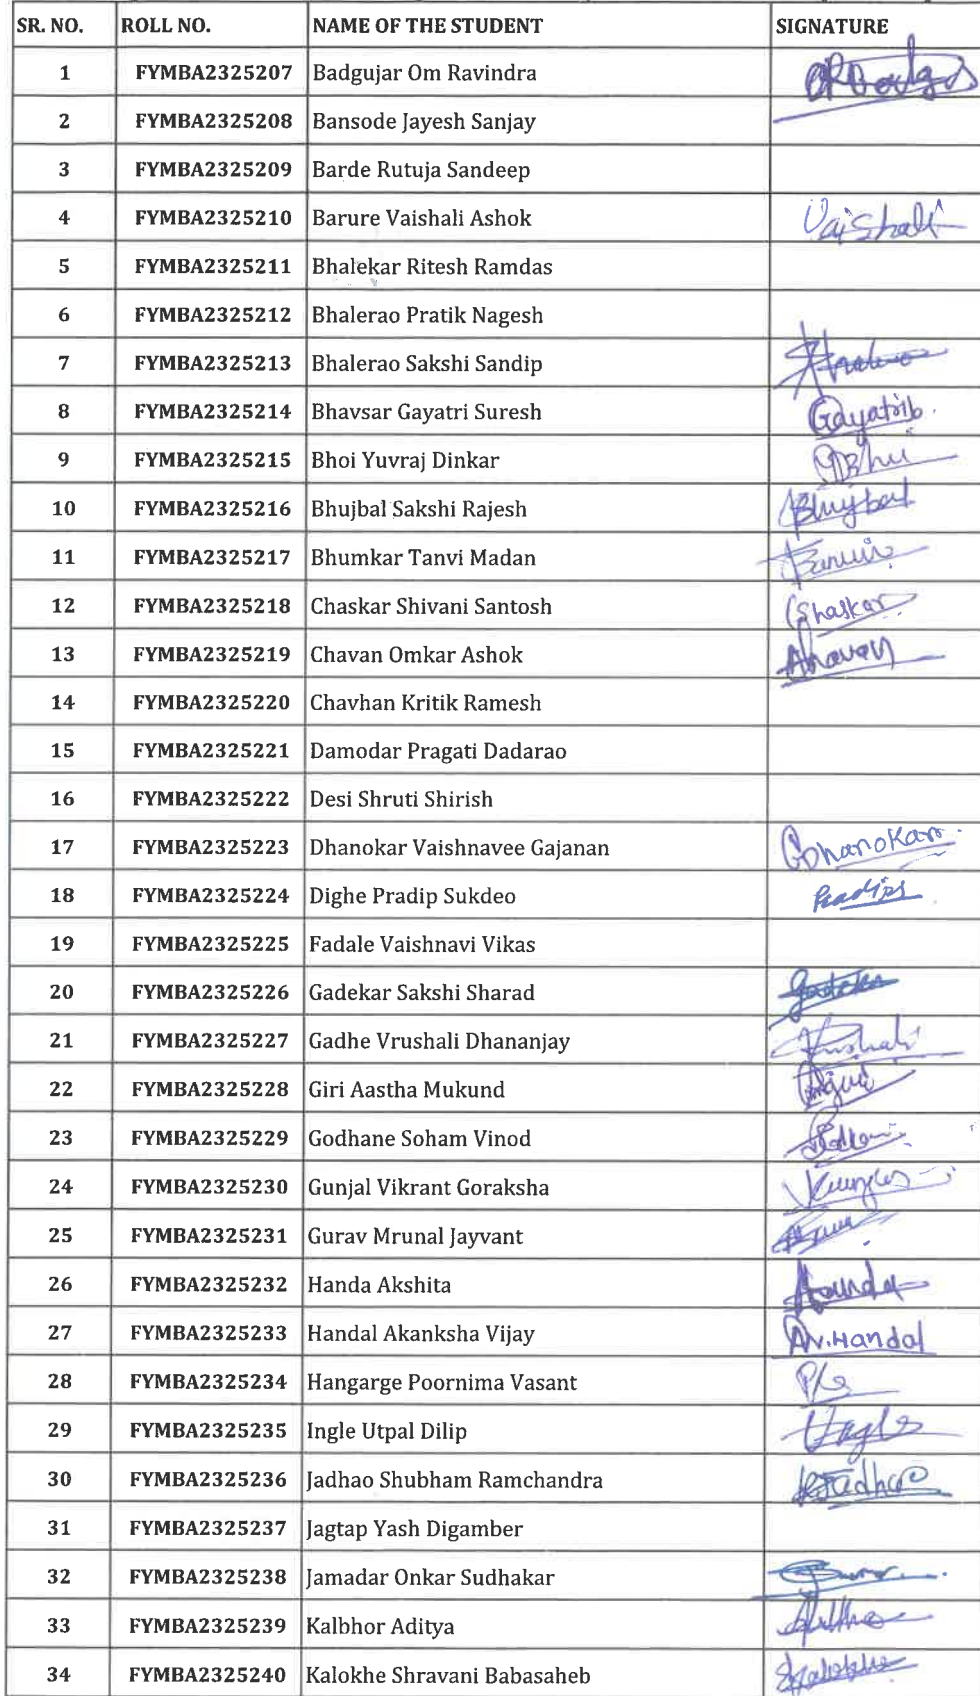 SR. NO. ROLL NO. NAME OF THE STUDENT SIGNATURE
1 FYMBA2325207 Badgujar Om Ravindra
2 FYMBA2325208 Bansode Jayesh Sanjay
3 FYMBA2325209 Barde Rutuja Sandeep
4 FYMBA2325210 Barure Vaishali Ashok Vaishali
5 FYMBA2325211 Bhalekar Ritesh Ramdas
6 FYMBA2325212 Bhalerao Pratik Nagesh
7 FYMBA2325213 Bhalerao Sakshi Sandip
8 FYMBA2325214 Bhavsar Gayatri Suresh Gayatrib.
9 FYMBA2325215 Bhoi Yuvraj Dinkar
10 FYMBA2325216 Bhujbal Sakshi Rajesh Bhujbal
11 FYMBA2325217 Bhumkar Tanvi Madan
12 FYMBA2325218 Chaskar Shivani Santosh Chaskar
13 FYMBA2325219 Chavan Omkar Ashok
14 FYMBA2325220 Chavhan Kritik Ramesh
15 FYMBA2325221 Damodar Pragati Dadarao
16 FYMBA2325222 Desi Shruti Shirish
17 FYMBA2325223 Dhanokar Vaishnavee Gajanan
18 FYMBA2325224 Dighe Pradip Sukdeo
19 FYMBA2325225 Fadale Vaishnavi Vikas
20 FYMBA2325226 Gadekar Sakshi Sharad
21 FYMBA2325227 Gadhe Vrushali Dhananjay
22 FYMBA2325228 Giri Aastha Mukund
23 FYMBA2325229 Godhane Soham Vinod
24 FYMBA2325230 Gunjal Vikrant Goraksha
25 FYMBA2325231 Gurav Mrunal Jayvant
26 FYMBA2325232 Handa Akshita
27 FYMBA2325233 Handal Akanksha Vijay Av.Handal
28 FYMBA2325234 Hangarge Poornima Vasant
29 FYMBA2325235 Ingle Utpal Dilip
30 FYMBA2325236 Jadhao Shubham Ramchandra
31 FYMBA2325237 Jagtap Yash Digamber
32 FYMBA2325238 Jamadar Onkar Sudhakar
33 FYMBA2325239 Kalbhor Aditya
34 FYMBA2325240 Kalokhe Shravani Babasaheb